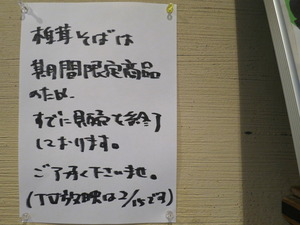 椎茸そばは
期間限定商品
のため、
すでに販売を終了
しております。
ご了承下さいませ。
(TV放映は2/15です)